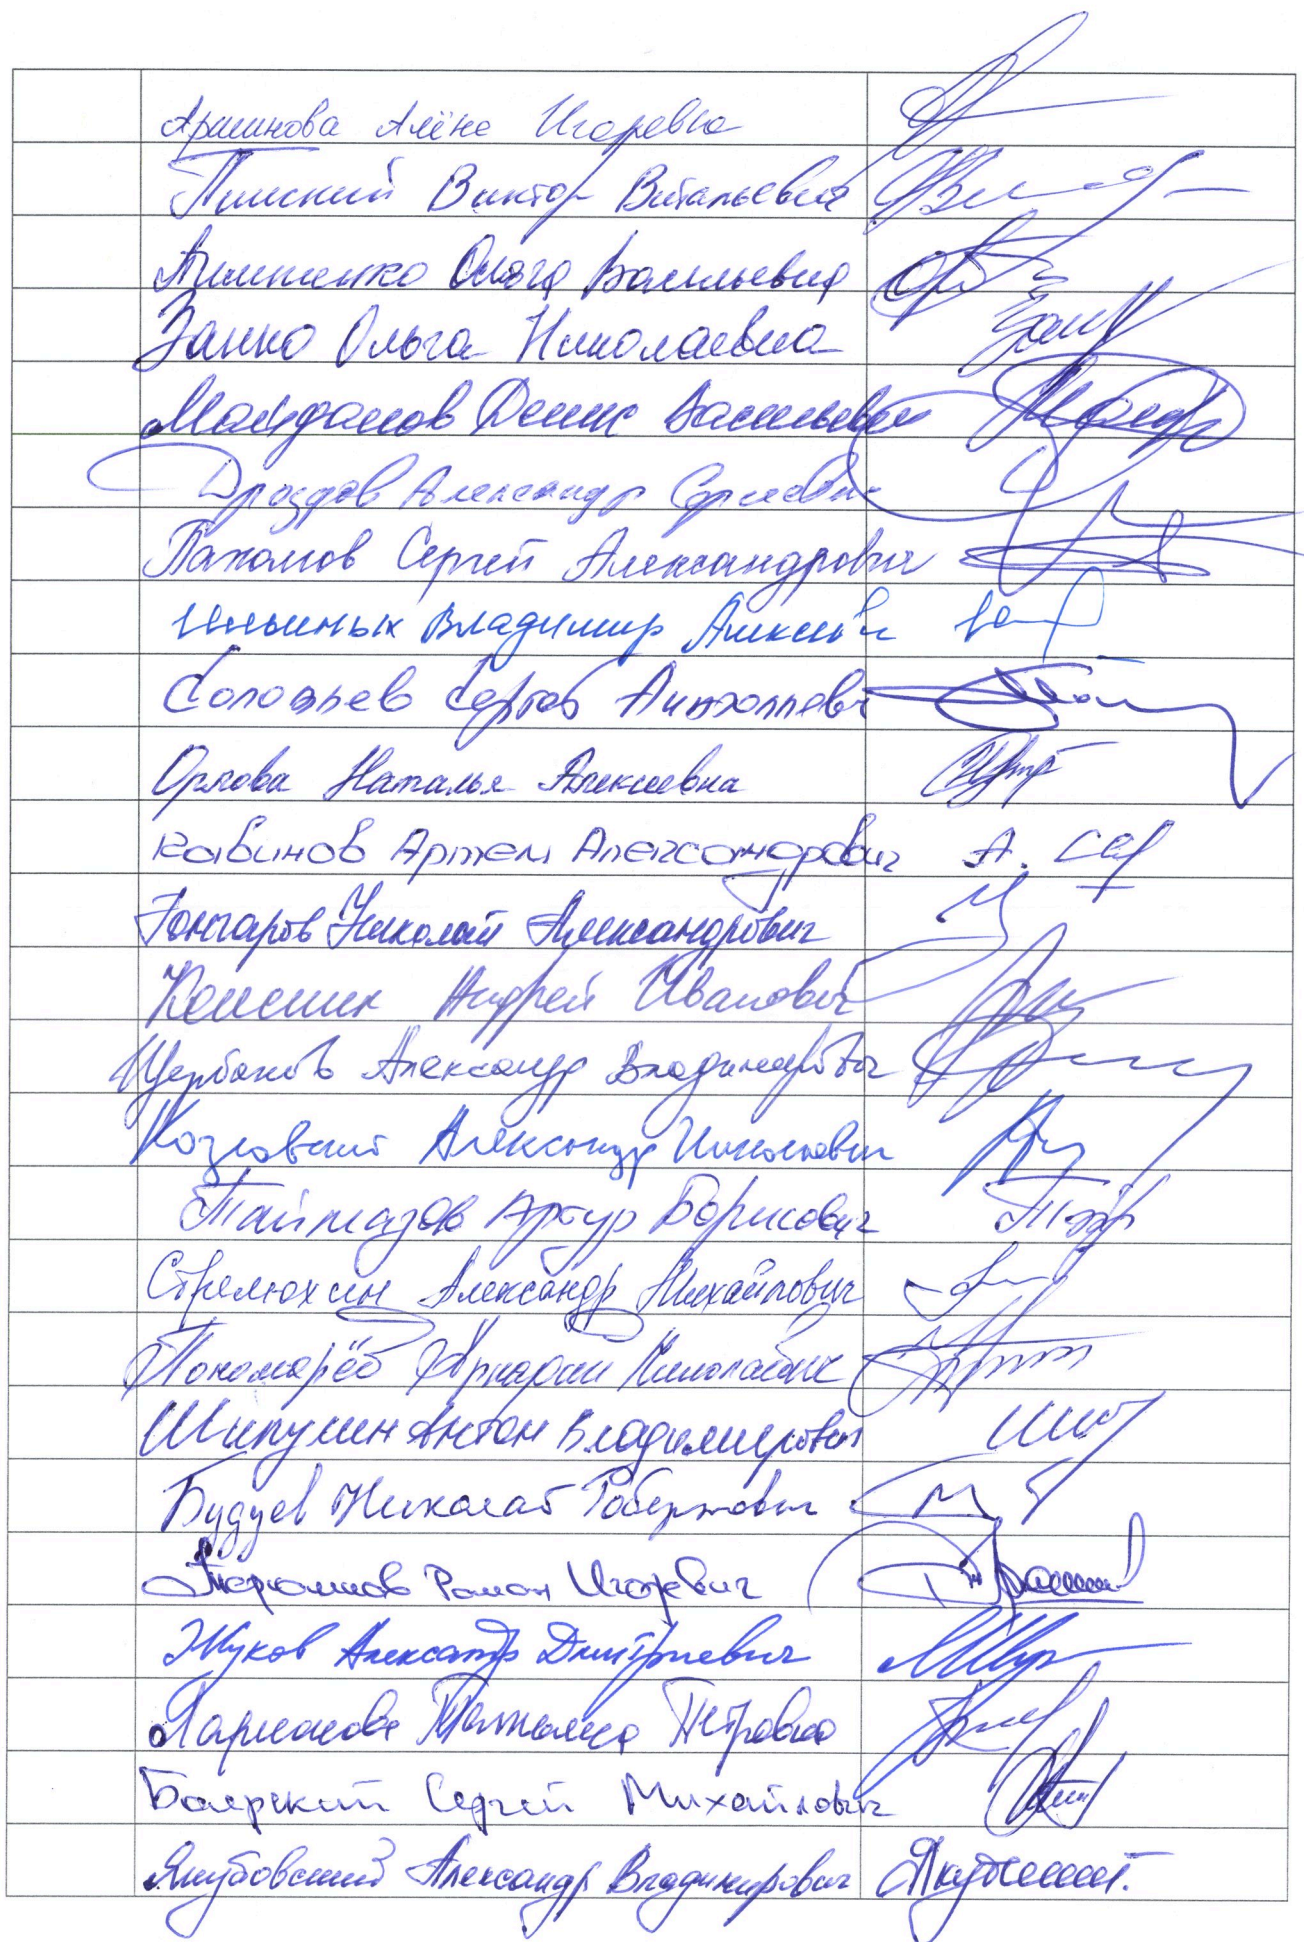 Аршинова Алёна Игоревна
Пинский Виктор Витальевич
Анищенко Ольга Васильевна
Занко Ольга Николаевна
Майданов Денис Васильевич
Дроздов Александр Сергеевич
Пахомов Сергей Александрович
Ильиных Владимир Алексеев
Соловьев Сергей Анатольевич
Орлова Наталья Алексеевна
Кавинов Артем Александрович А. Cap
Гончаров Николай Александрович
Андрей Иванович
Щербаков Александр Владимирович
Козловский Александр Николаевич
Таймазов Артур Борисович
Стрелюхин Александр Михайлович
Пономарёв Аркадий Николаевич
Шипулин Антон Владимирович
Будуев Николай Робертович
Терюшков Роман Игоревич
Жуков Александр Дмитриевич
Ларионова Татьяна Петровна
Боярский Сергей Михайлович
Якубовский Александр Владимирович